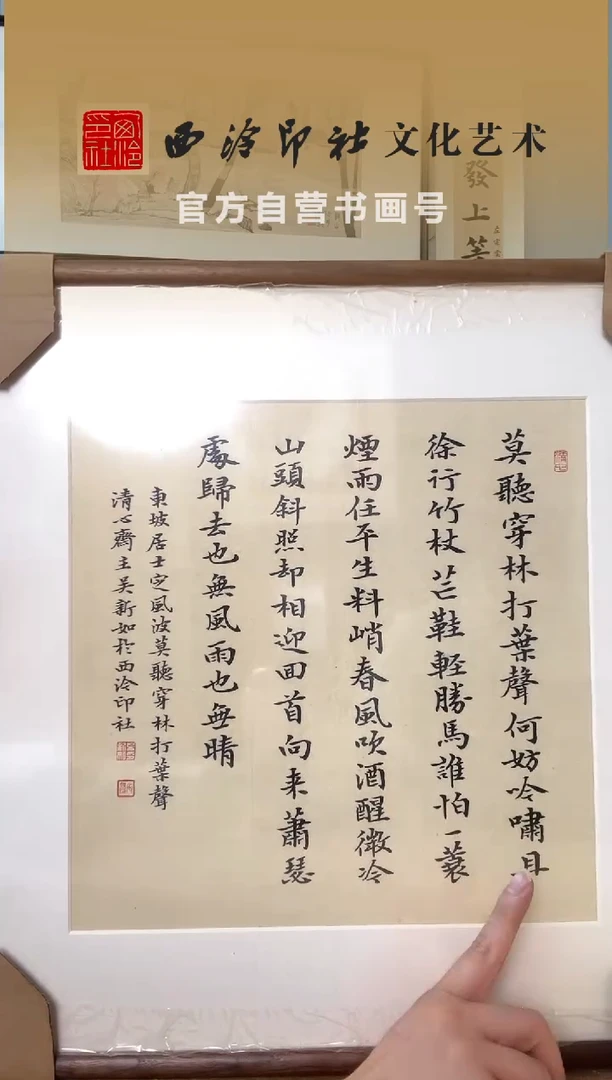 西泠印社
西泠印社文化艺术
官方自营书画号
發上等
莫聽穿林打葉聲何妨吟嘯且
徐行竹杖芒鞋輕勝馬誰怕一蓑
煙雨任平生料峭春風吹酒醒微冷
山頭斜照却相迎回首向来蕭瑟
處歸去也無風雨也無晴
東坡居士定風波莫聽穿林打葉聲
清心齋主吴新如於西泠印社